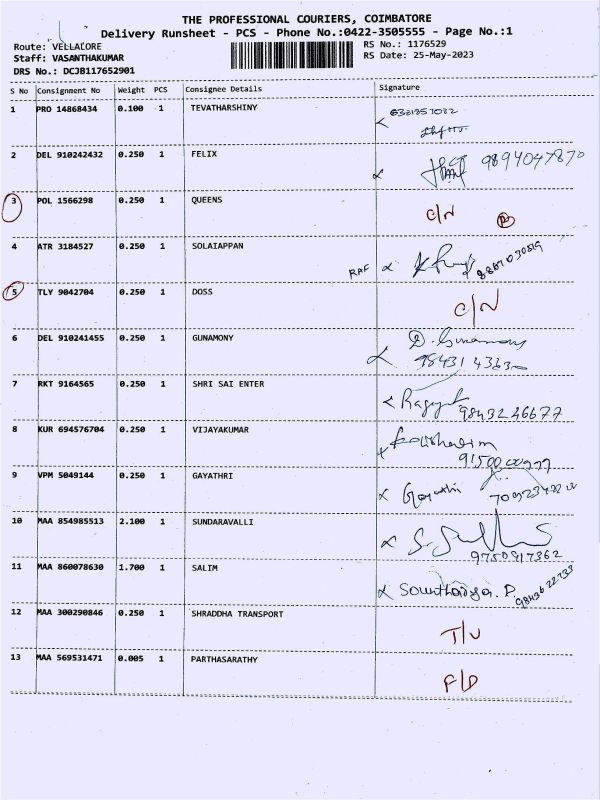 THE PROFESSIONAL COURIERS, COIMBATORE
Delivery Runsheet - PCS - Phone No.:0422-3505555 - Page No.:1
Route: VELLALORE
RS No.: 1176529
Staff: VASANTHAKUMAR
RS Date: 25-May-2023
DRS No.: DCJB117652901
S No Consignment No Weight PCS Consignee Details Signature
1 PRO 14868434 0.100 1 TEVATHARSHINY
2 DEL 910242432 0.250 1 FELIX 9894047870
3 POL 1566298 0.250 1 QUEENS C/N
4 ATR 3184527 0.250 1 SOLAIAPPAN
5 TLY 9042704 0.250 1 DOSS C/N
6 DEL 910241455 0.250 1 GUNAMONY D. Gunamony
7 RKT 9164565 0.250 1 SHRI SAI ENTER 9843246677
8 KUR 694576704 0.250 1 VIJAYAKUMAR
9 VPM 5049144 0.250 1 GAYATHRI Gayathri
10 MAA 854985513 2.100 1 SUNDARAVALLI
9750917362
11 MAA 860078630 1.700 1 SALIM Sounthariya. P.
12 MAA 300290846 0.250 1 SHRADDHA TRANSPORT
13 MAA 569531471 0.005 1 PARTHASARATHY F/D